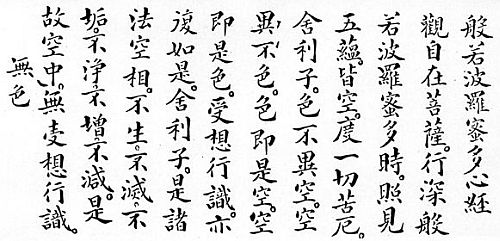 般若波羅蜜多心経
觀自在菩薩。行深般
若波羅蜜多時。照見
五蘊皆空。度一切苦厄。
舍利子。色不異空。空
異不色。色即是空。空
即是色。受想行識。亦
復如是。舍利子。是諸
法空相。不生。不滅。不
垢。不淨。不增。不減。是
故空中。無受想行識。
無色